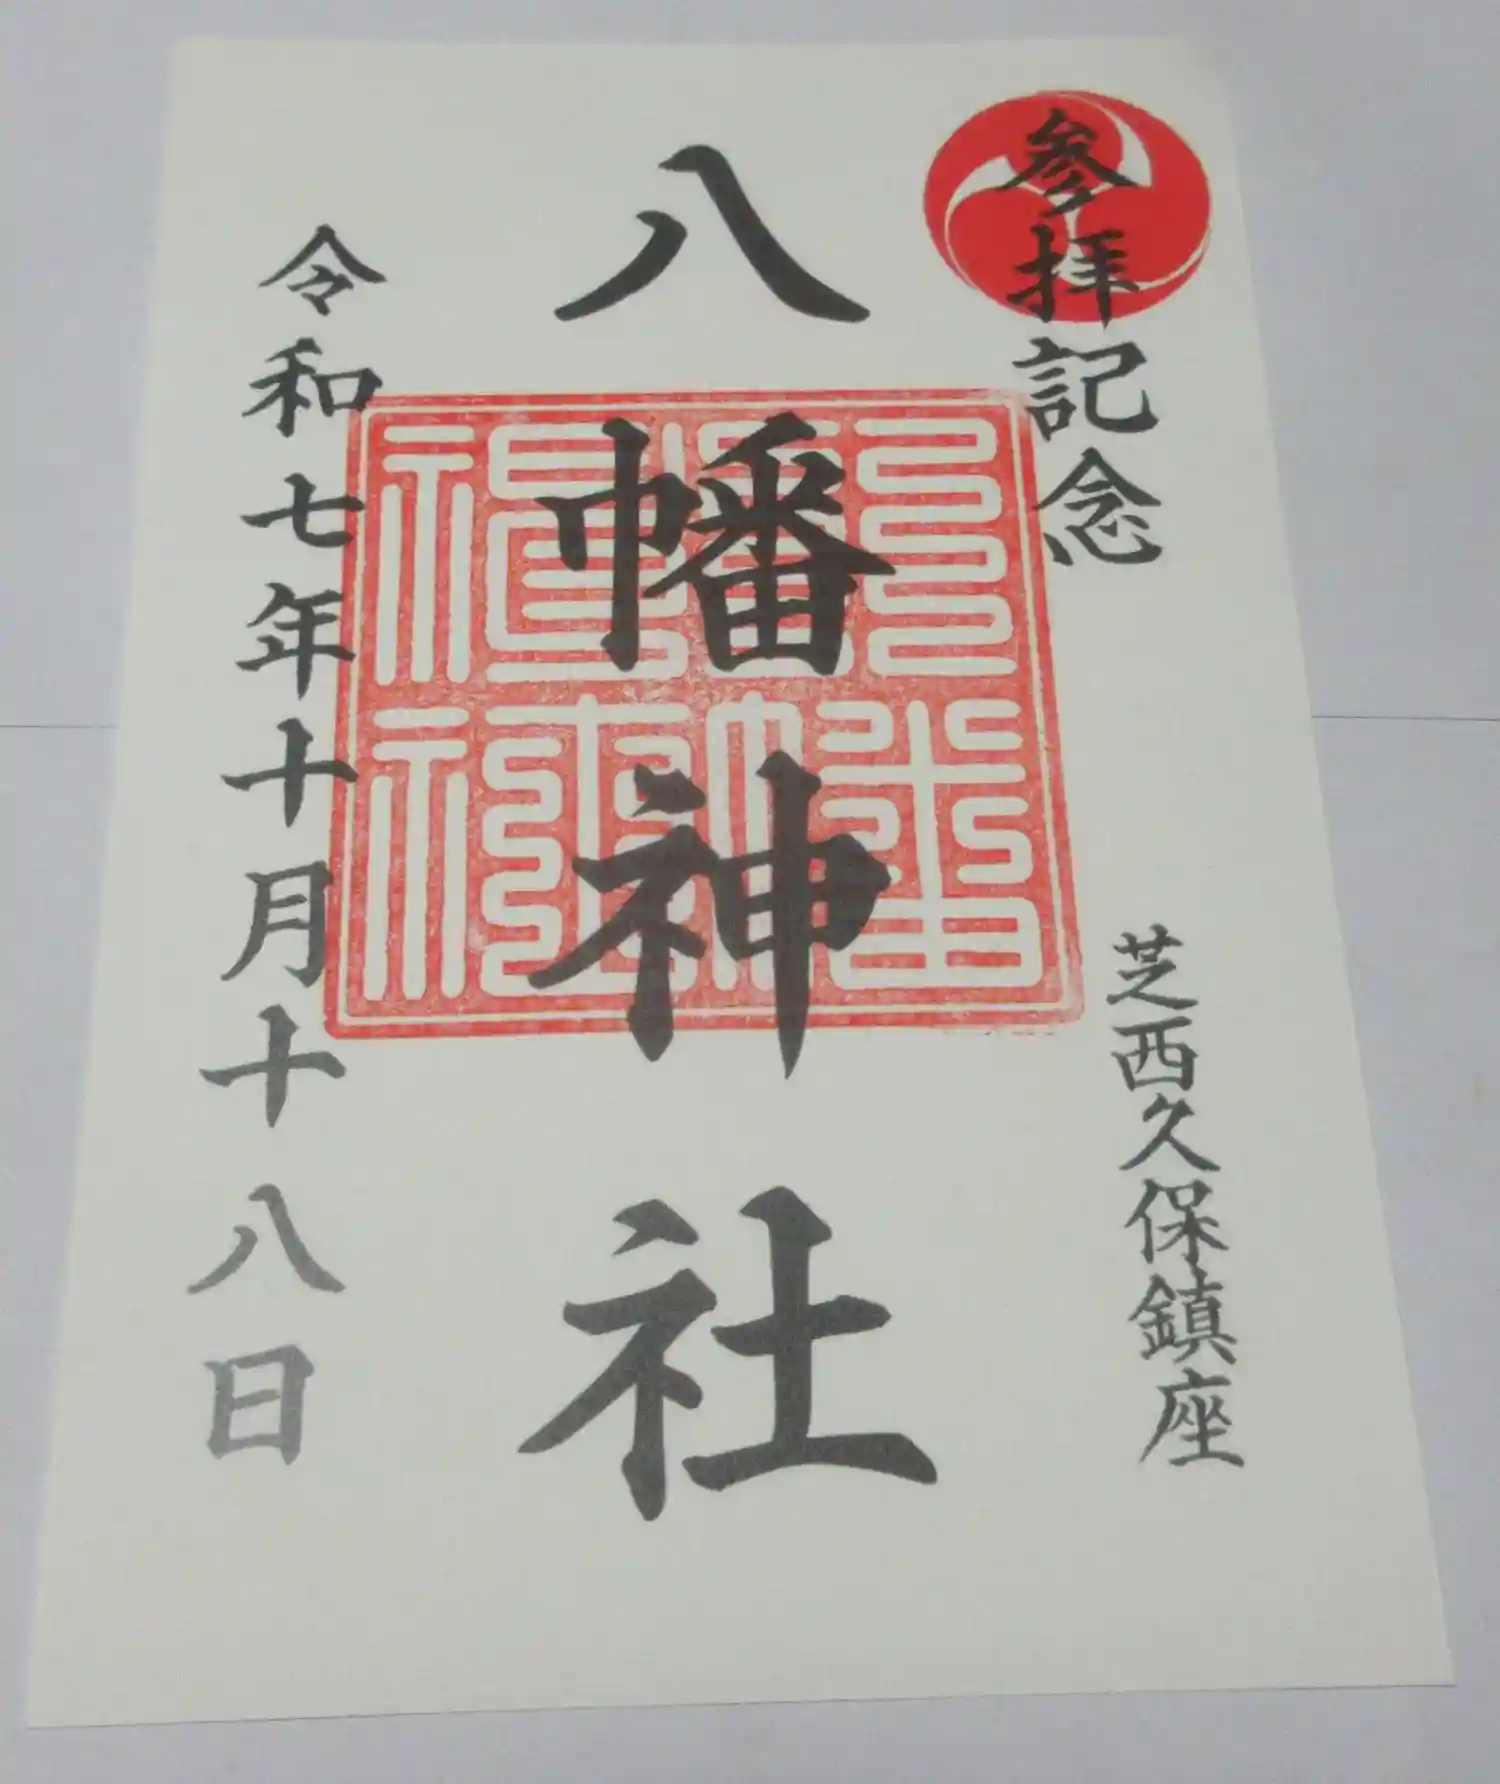 参拝記念
芝西久保鎮座
八幡神社
八幡神社
令和七年十月十八日